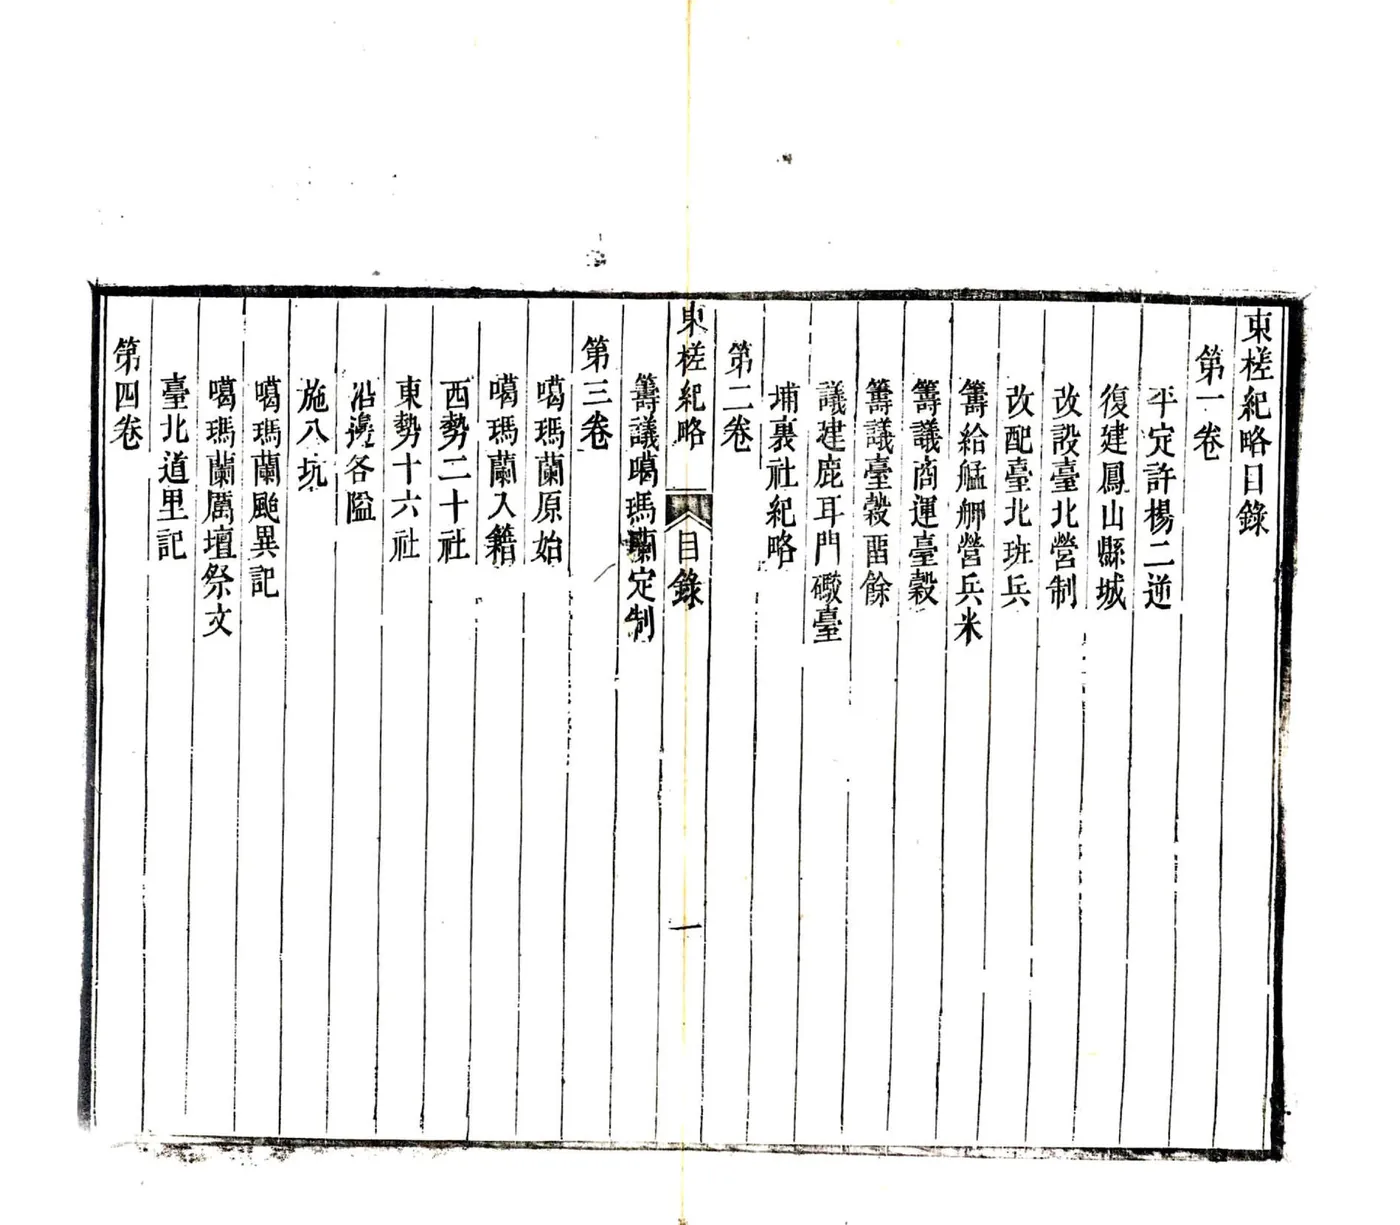 東槎紀略目錄
第一卷
平定許楊二逆
復建鳳山縣城
改設臺北營制
改配臺北班兵
籌給艋舺營兵米
籌議商運臺穀
籌議臺穀畱餘
議建鹿耳門礮臺
埔裏社紀略
第二卷
東槎紀略
目錄
一
籌議噶瑪蘭定制
第三卷
噶瑪蘭原始
噶瑪蘭入籍
西勢二十社
東勢十六社
沿邊各隘
施八坑
噶瑪蘭颱異記
噶瑪蘭厲壇祭文
臺北道里記
第四卷